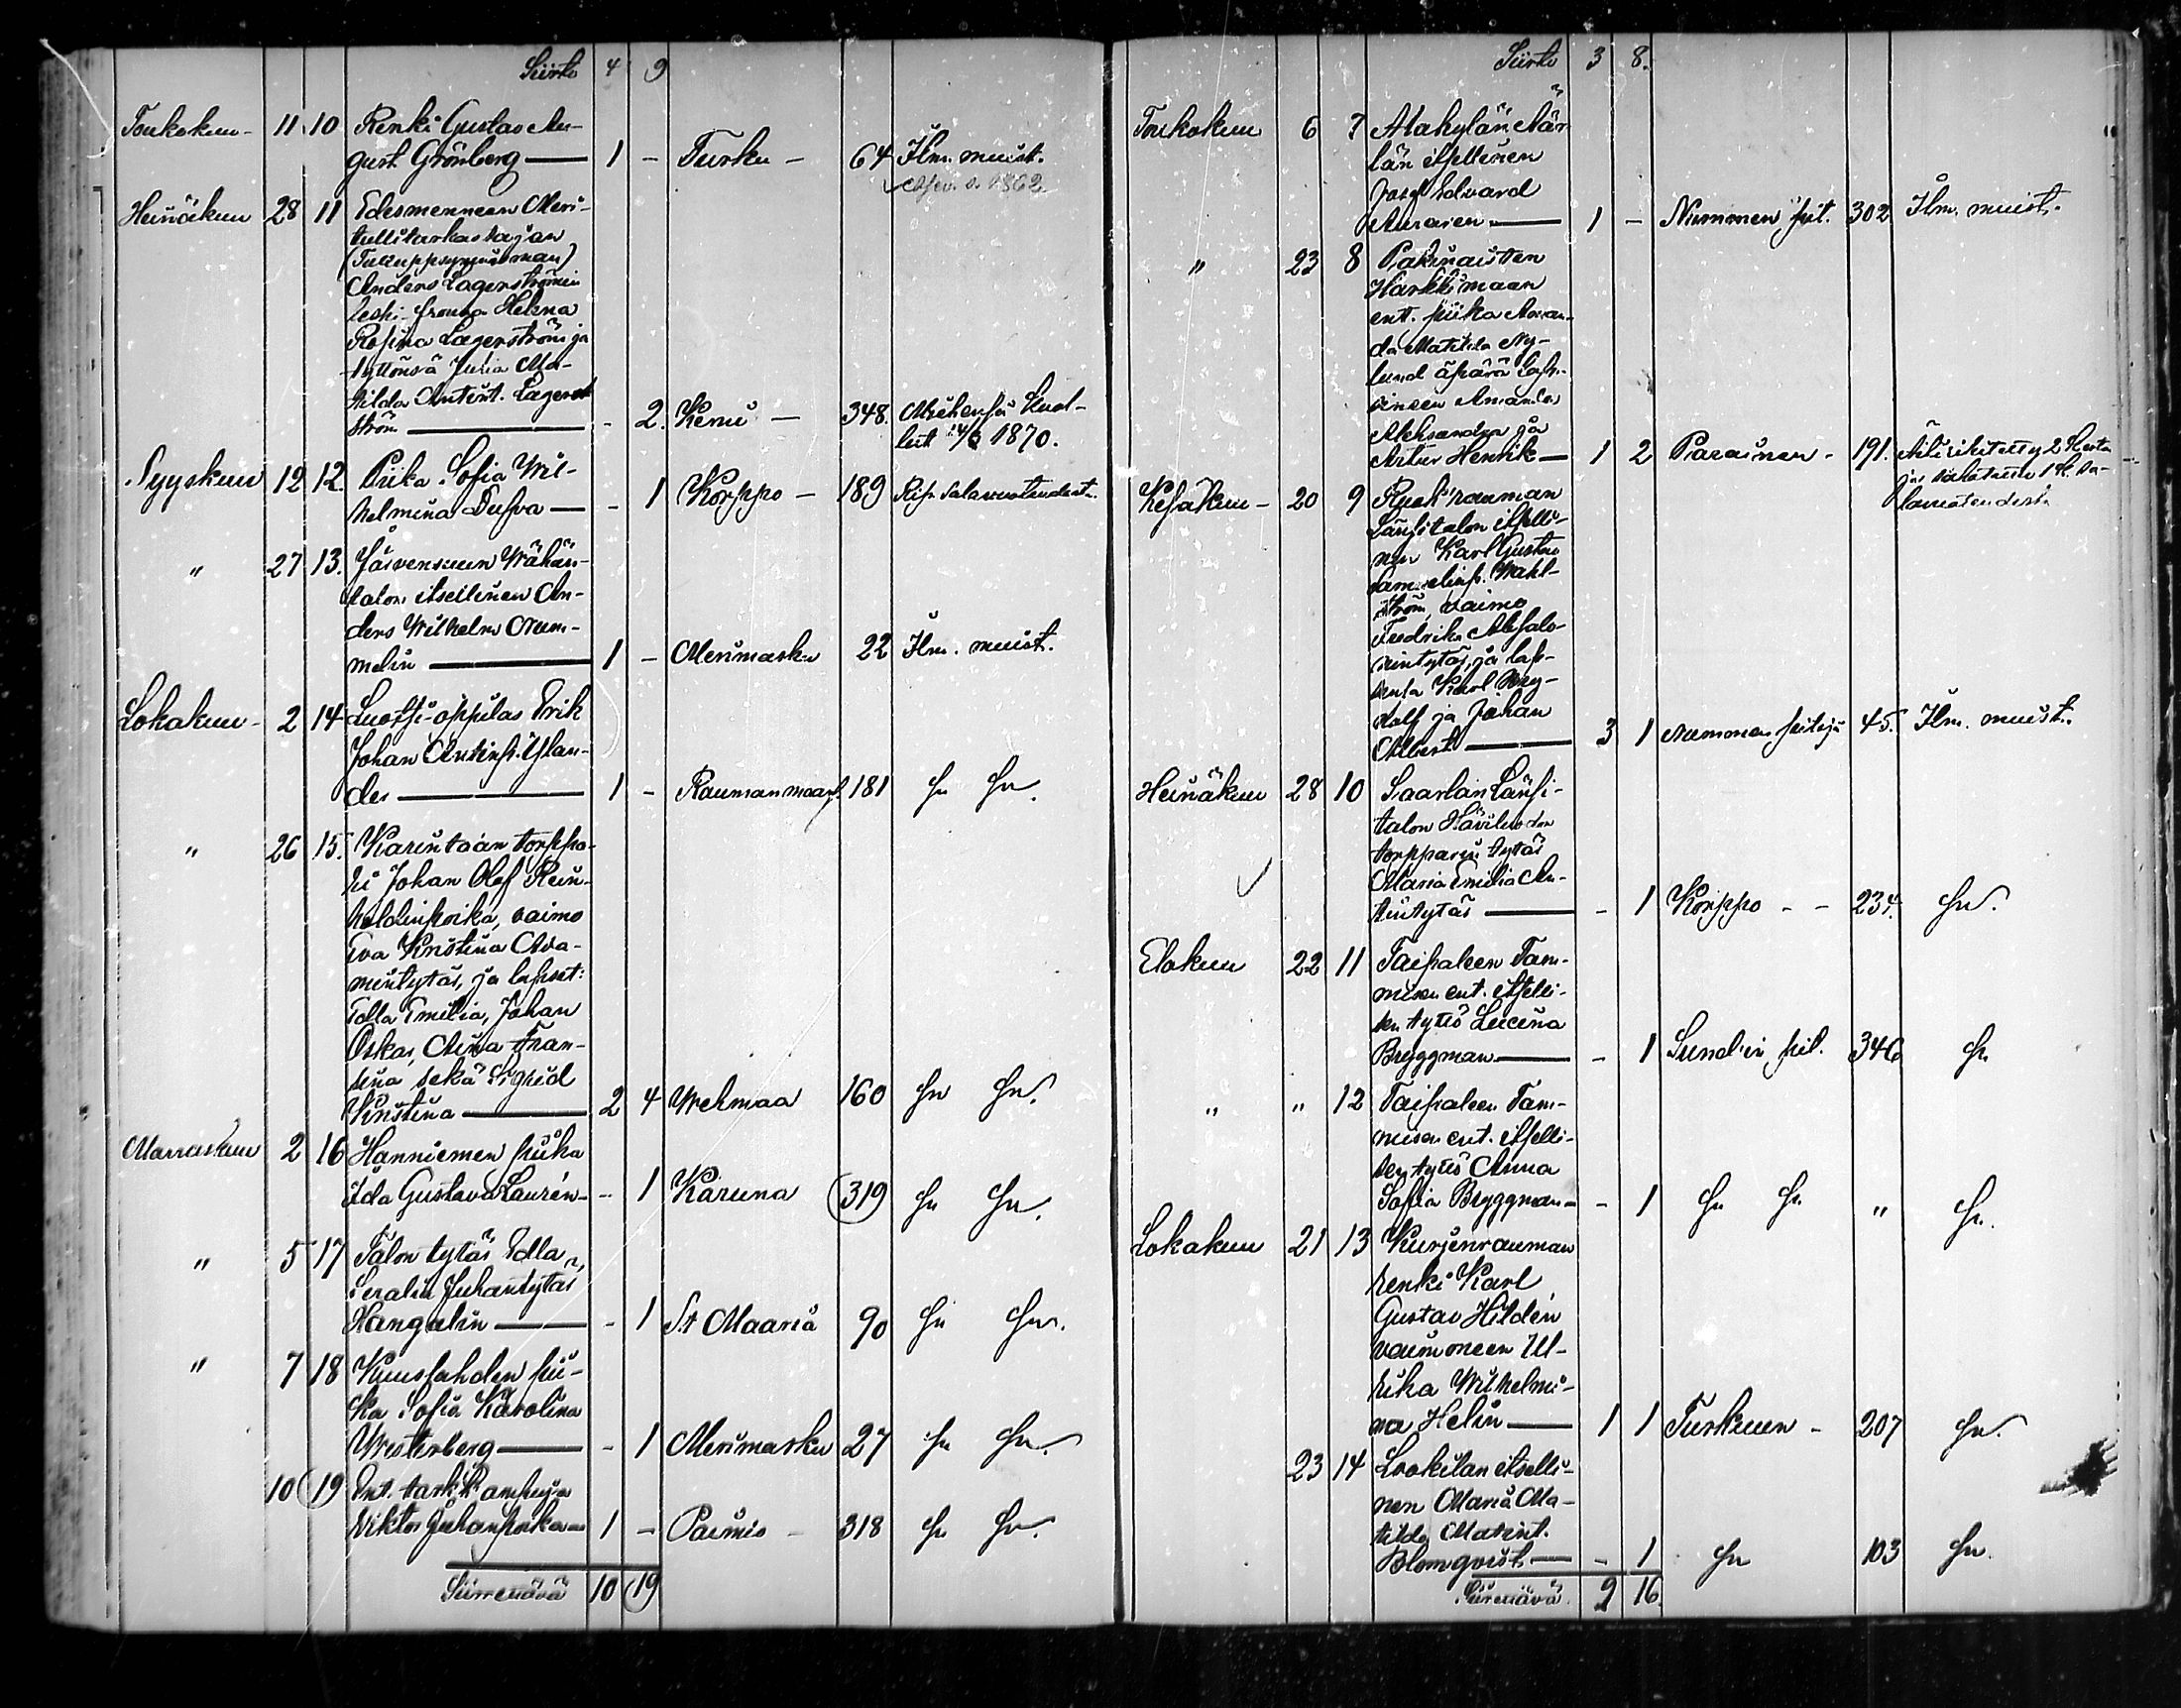 Siirto 4 9
Toukokuu - 11 10 Renki Gustav Au-
gust Grönberg — 1 - Turku - 64 Ilm. muist.
1862
Heinäkuu 28 11 Edesmenneen Meri-
tullitarkastajan
Anders Lagerströmin
leski-frouva Helena
Rosina Lagerström ja
tyttönsä Julia Ma-
tilda Antint. Lager-
ström — - 2. Kemi - 348. 1870.
Syyskuu 12 12. Piika Sofia Wil-
helmina Dufva — - 1 Korppo - 189
" 27 13. Järvensuun Wähän-
talon itsellinen An-
ders Wilhelm Num-
melin — 1 - Merimasku 22 Ilm. muist.
Lokakuu - 2 14 Luotsi-oppilas Erik
Johan Antinp. Ylan-
der — 1 - Raumanmaas. 181 sn sn.
" 26 15. Karintaan torppa-
ri Johan Olof Rein-
holdinpoika, vaimo
Eva Kristina Ada-
mintytär, ja lapset:
Edla Emilia, Johan
Oskar, Aina Fran-
siina sekä Sigrid
Kristina — 2 4 Wehmaa 160 sn sn.
Marraskuu 2 16 Hanniemen piika
Ida Gustava Laurén - - 1 Karuna 319 sn sn.
" 5 17 Talon tytär Edla
Serafia Juhantytär
Hangelin — - 1 St Maaria 90 sn sn.
" 7 18 Kuuslahden pii-
ka Sofia Karolina
Westerberg — - 1 Merimasku 27 sn sn.
10 19 Ent. tarkk'ampuja
Viktor Juhanpoika - 1 - Paimio - 318 sn sn.
Siirrettävä 10 19
Siirto 3 8.
Toukokuu 6 7 Alakylän Når-
län itsellinen
Josef Edvard
Auranen — 1 - Nummen pit. 302 Ilm. muist.
" 23 8 Pakinaisten
Harkkimaan
ent. piika Aman-
da Matilda Ny-
lund äpärä laps-
sineen Amanda
Aleksandra ja
Artur Henrik — 1 2 Parainen - 191.
Kesäkuu - 20 9 Ruok'rauman
Länsitalon itselli-
nen Karl Gustav
Samuelinp. Wahl-
ström, vaimo
Fredrika Absalo-
mintytär, ja lap-
senta Karl
dolf ja Johan
Albert — 3 1 Nummen pitäjä 45. Ilm. muist.
Heinäkuu 28 10 Saarlan Länsi-
talon
torpparin tytär
Maria Emilia An-
tintytär — - 1 Korppo - - 234. sn.
Elokuu 22 11 Taipaleen Tam-
misen ent. itselli-
sen tyttö Lucina
Bryggman — - 1 Sund'in pit. 346 sn
" " 12 Taipaleen Tam-
misen ent. itselli-
sen tyttö Anna
Sofia Bryggman - - 1 sn sn " sn.
Lokakuu 21 13 Kurjenrauman
renki Karl
Gustav Hildén
vaimoneen Ul-
rika Wilhelmi-
na Helin — 1 1 Turkuun - 207 sn.
23 14 Lookilan itselli-
nen Maria Ma-
tilda Matint.
Blomqvist — - 1 sn 103 sn.
Siirrettävä 9 16.